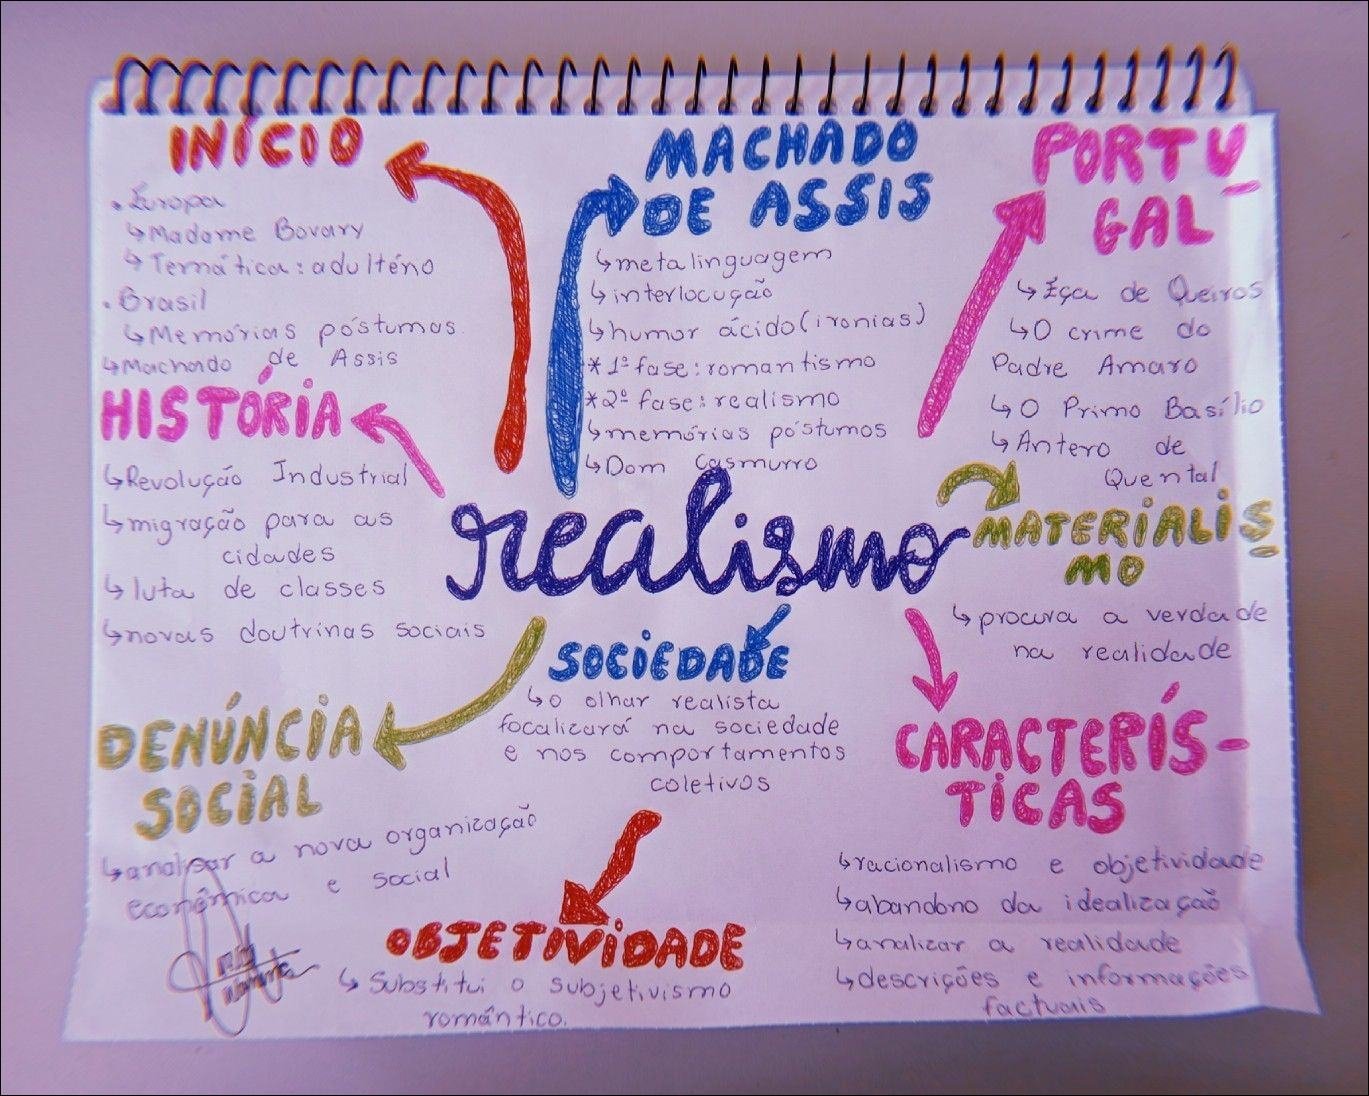 INÍCIO
• Europa
↳ Madame Bovary
↳ Temática: adultério
• Brasil
↳ Memórias póstumas.
↳ Machado de Assis
MACHADO
DE ASSIS
↳ metalinguagem
↳ interlocução
↳ humor ácido (ironias)
* 1º fase: romantismo
* 2º fase: realismo
↳ memórias póstumos
↳ Dom Casmurro
PORTU-
GAL
↳ Eça de Queiros
↳ O crime do
Padre Amaro
↳ O Primo Basílio
↳ Antero de
Quental
HISTÓRIA
↳ Revolução Industrial
↳ migração para as
cidades
↳ luta de classes
↳ novas doutrinas sociais
realismo
MATERIALIS-
MO
↳ procura a verdade
na realidade
SOCIEDADE
↳ o olhar realista
focalizará na sociedade
e nos comportamentos
coletivos
DENÚNCIA
SOCIAL
↳ analisar a nova organização
econômica e social
CARACTERÍS-
TICAS
↳ racionalismo e objetividade
↳ abandono da idealização
↳ analizar a realidade
↳ descrições e informações
factuais
OBJETIVIDADE
↳ Substitui o subjetivismo
romântico.